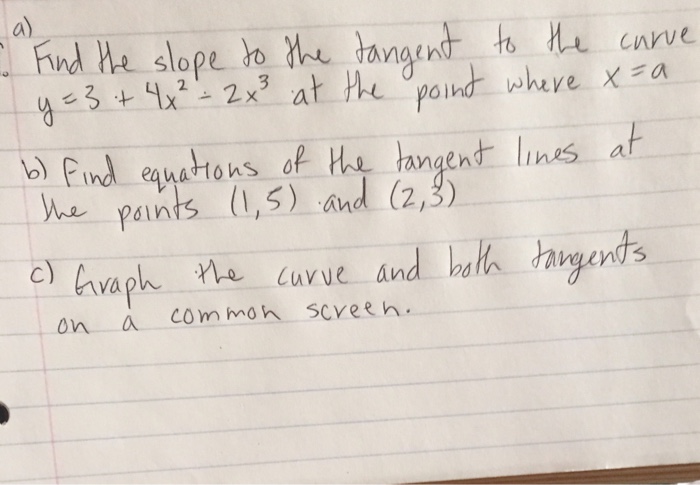 a)
Find the slope to the tangent to the curve
y = 3 + 4x² - 2x³ at the point where x = a
b) Find equations of the tangent lines at
the points (1,5) and (2,3)
c) Graph the curve and both tangents
on a common screen.